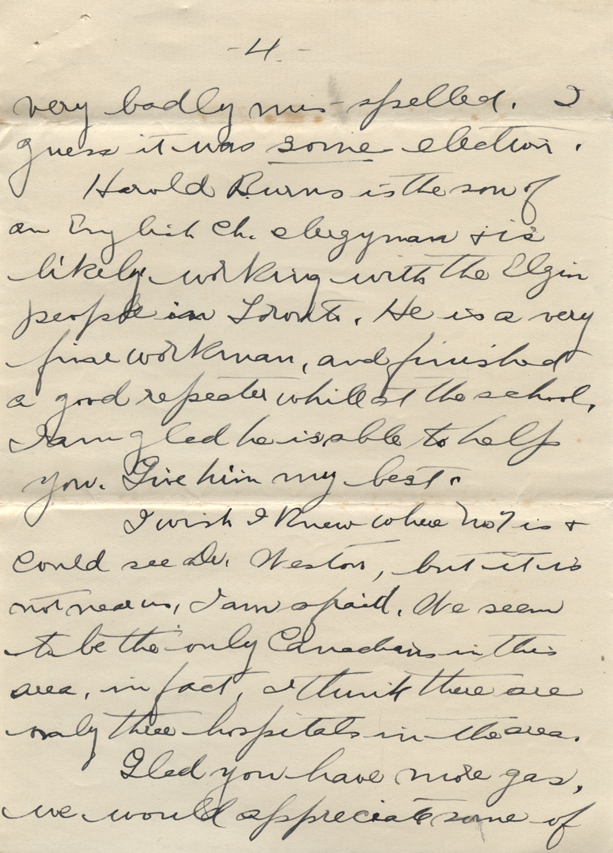 -4-
very badly mis-spelled. I
guess it was some election.
Harold Burns is the son of
an English Ch. clergyman & is
likely working with the Elgin
people in Toronto. He is a very
fine workman, and finished
a good repeater while at the school.
I am glad he is able to help
you. Give him my best.
I wish I knew where No 7 is &
could see Dr. Weston, but it is
not near us, I am afraid. We seem
to be the only Canadians in this
area, in fact, I think there are
only three hospitals in the area.
Glad you have more gas,
we would appreciate some of